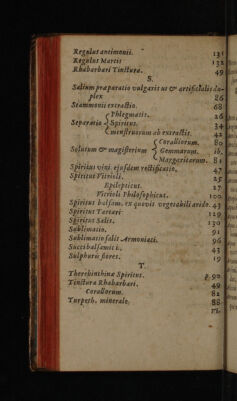 Regulus antimonii. 131
Regulus Martis 132
Rhabarbari Tinctura. 49
S.
Salium præparatio vulgaris us & artificialis du-
plex 26
Scammonii extractio. 68
Phlegmatis. 26
Separatio Spiritus. 34
menstruorum ab extractis. 42
Corallorum. 80
Solutum & magisterium Gemmarum. ib.
Margaritarum. 81
Spiritus vini. ejusdem rectificatio. 47
Spiritus Vitrioli. 25
Epilepticus. 27
Vitrioli Philosophicus. 100
Spiritus balsam. ex quovis vegetabili arido. 43
Spiritus Tartari 129
Spiritus Salis. 130
Sublimatio. 91
Sublimatio salis Armoniaci. 96
Succi balsamici. 43
Sulphuris flores. 19
T.
Therebinthinæ Spiritus. p. 90
Tinctura Rhabarbari. 49
Corallorum. 82
Turpeth. minerale. 88
VI.